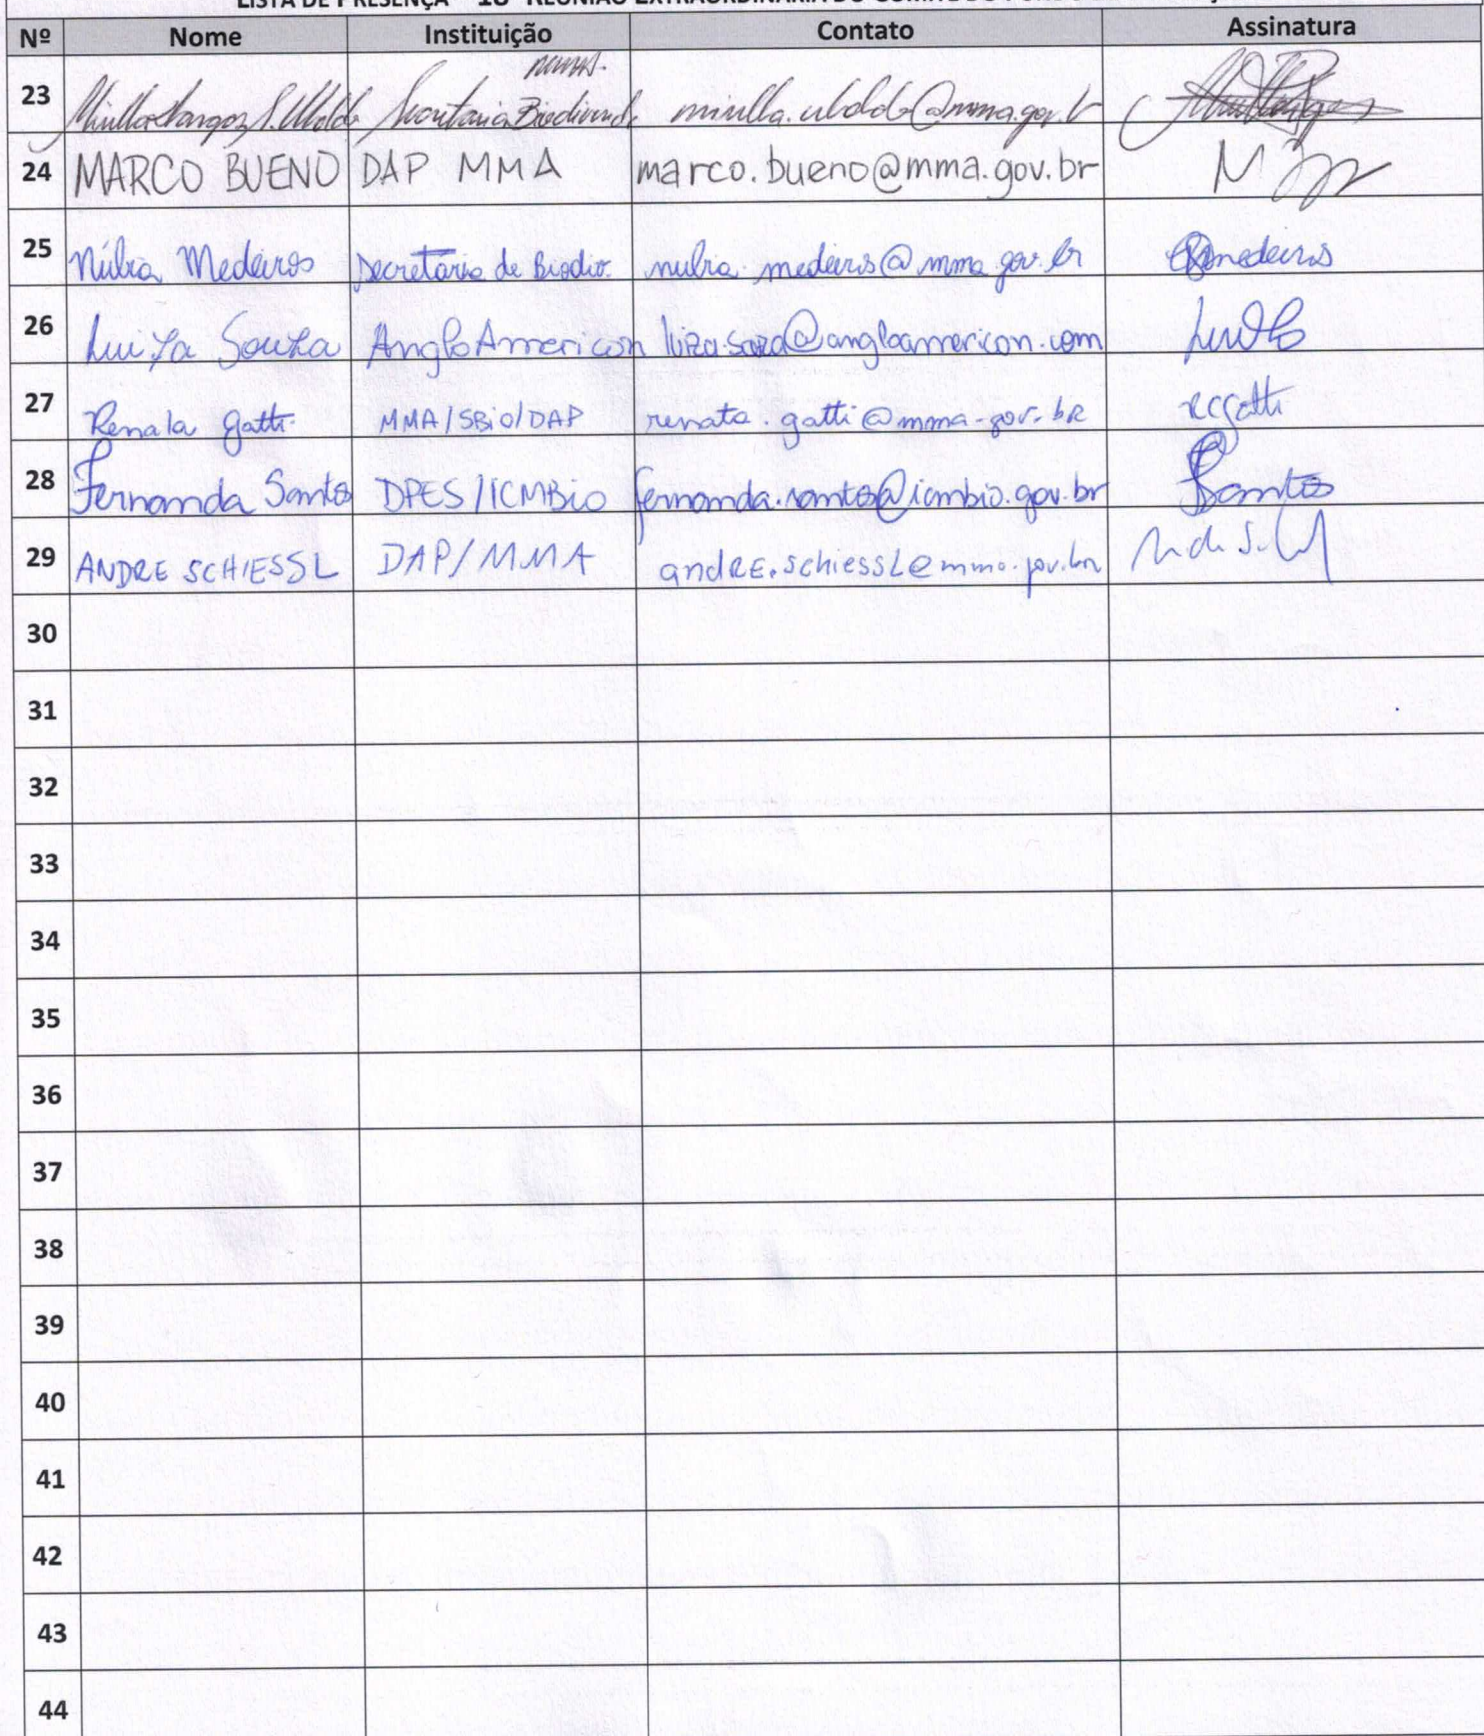 Nº Nome Instituição Contato Assinatura
23 Secretaria @mma.gov.br
24 MARCO BUENO DAP MMA marco.bueno@mma.gov.br
25 Núbia Medeiros Secretaria de Biodiv. nubia.medeiros@mma.gov.br medeiros
26 Luiza Souza AngloAmerican luiza.souza@angloamerican.com
27 Renata Gatti MMA/SBiO/DAP renata.gatti@mma.gov.br rcgatti
28 Fernanda Santos DPES/ICMBio fernanda.santos@icmbio.gov.br Santos
29 ANDRE SCHIESSL DAP/MMA andRE.schiessl@mma.gov.br
30
31
32
33
34
35
36
37
38
39
40
41
42
43
44